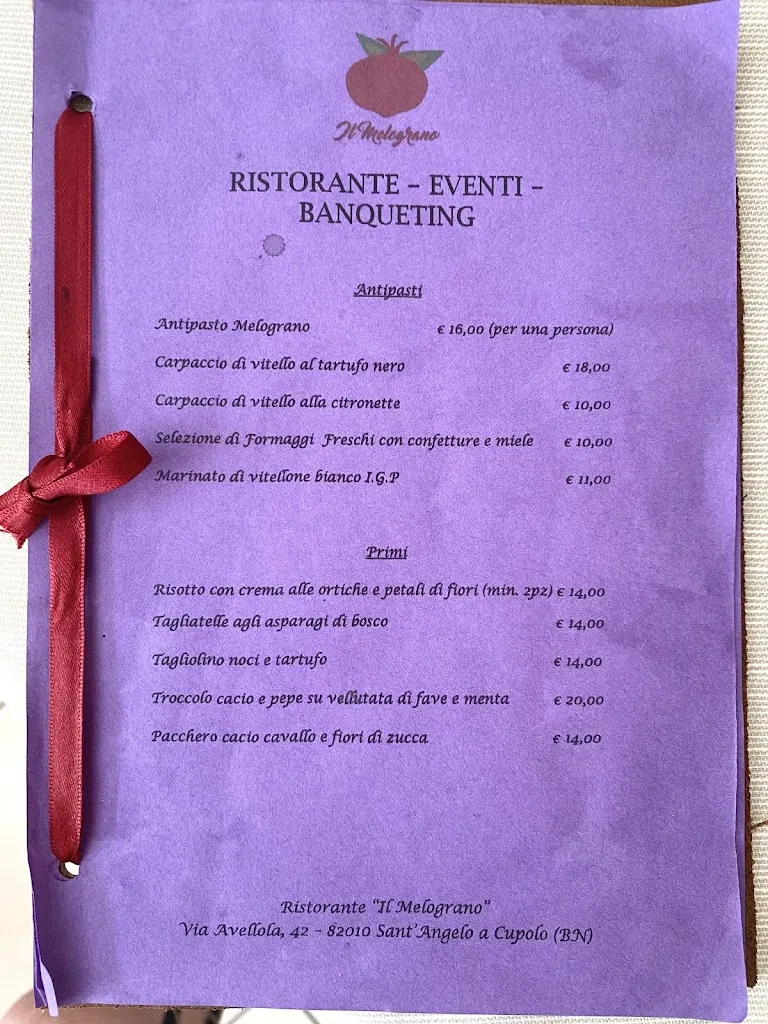 Il Melograno
RISTORANTE – EVENTI –
BANQUETING
Antipasti
Antipasto Melograno € 16,00 (per una persona)
Carpaccio di vitello al tartufo nero € 18,00
Carpaccio di vitello alla citronette € 10,00
Selezione di Formaggi Freschi con confetture e miele € 10,00
Marinato di vitellone bianco I.G.P € 11,00
Primi
Risotto con crema alle ortiche e petali di fiori (min. 2pz) € 14,00
Tagliatelle agli asparagi di bosco € 14,00
Tagliolino noci e tartufo € 14,00
Troccolo cacio e pepe su vellutata di fave e menta € 20,00
Pacchero cacio cavallo e fiori di zucca € 14,00
Ristorante “Il Melograno”
Via Avellola, 42 – 82010 Sant’Angelo a Cupolo (BN)